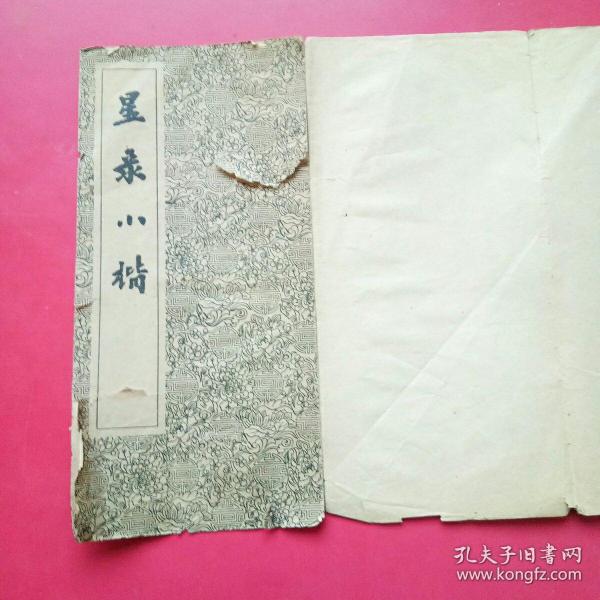 星彔小楷
孔夫子旧書网
www.kongfz.com